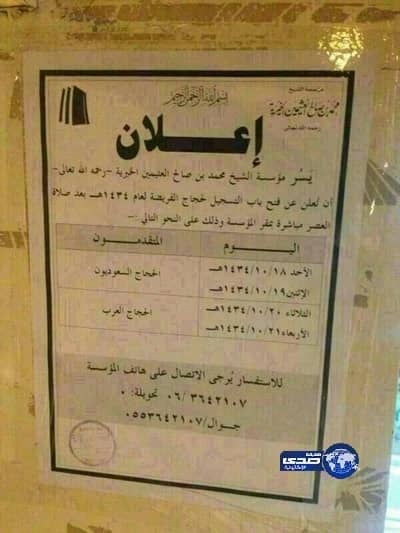 بسم الله الرحمن الرحيم
مؤسسة الشيخ
محمد بن صالح العثيمين الخيرية
رحمه الله تعالى
إعلان
يسر مؤسسة الشيخ محمد بن صالح العثيمين الخيرية -رحمه الله تعالى-
أن تعلن عن فتح باب التسجيل لحجاج الفريضة لعام ١٤٣٤هـ بعد صلاة
العصر مباشرة بمقر المؤسسة وذلك على النحو التالي :-
اليوم المتقدمون
الأحد ١٤٣٤/١٠/١٨هـ
الإثنين ١٤٣٤/١٠/١٩هـ
الحجاج السعوديون
الثلاثاء ١٤٣٤/١٠/٢٠هـ
الأربعاء ١٤٣٤/١٠/٢١هـ
الحجاج العرب
للاستفسار يُرجى الاتصال على هاتف المؤسسة
٠٦/٣٦٤٢١٠٧ تحويلة: ٠
جوال/٠٥٥٣٦٤٢١٠٧
صحيفة
صدى
الإلكترونية